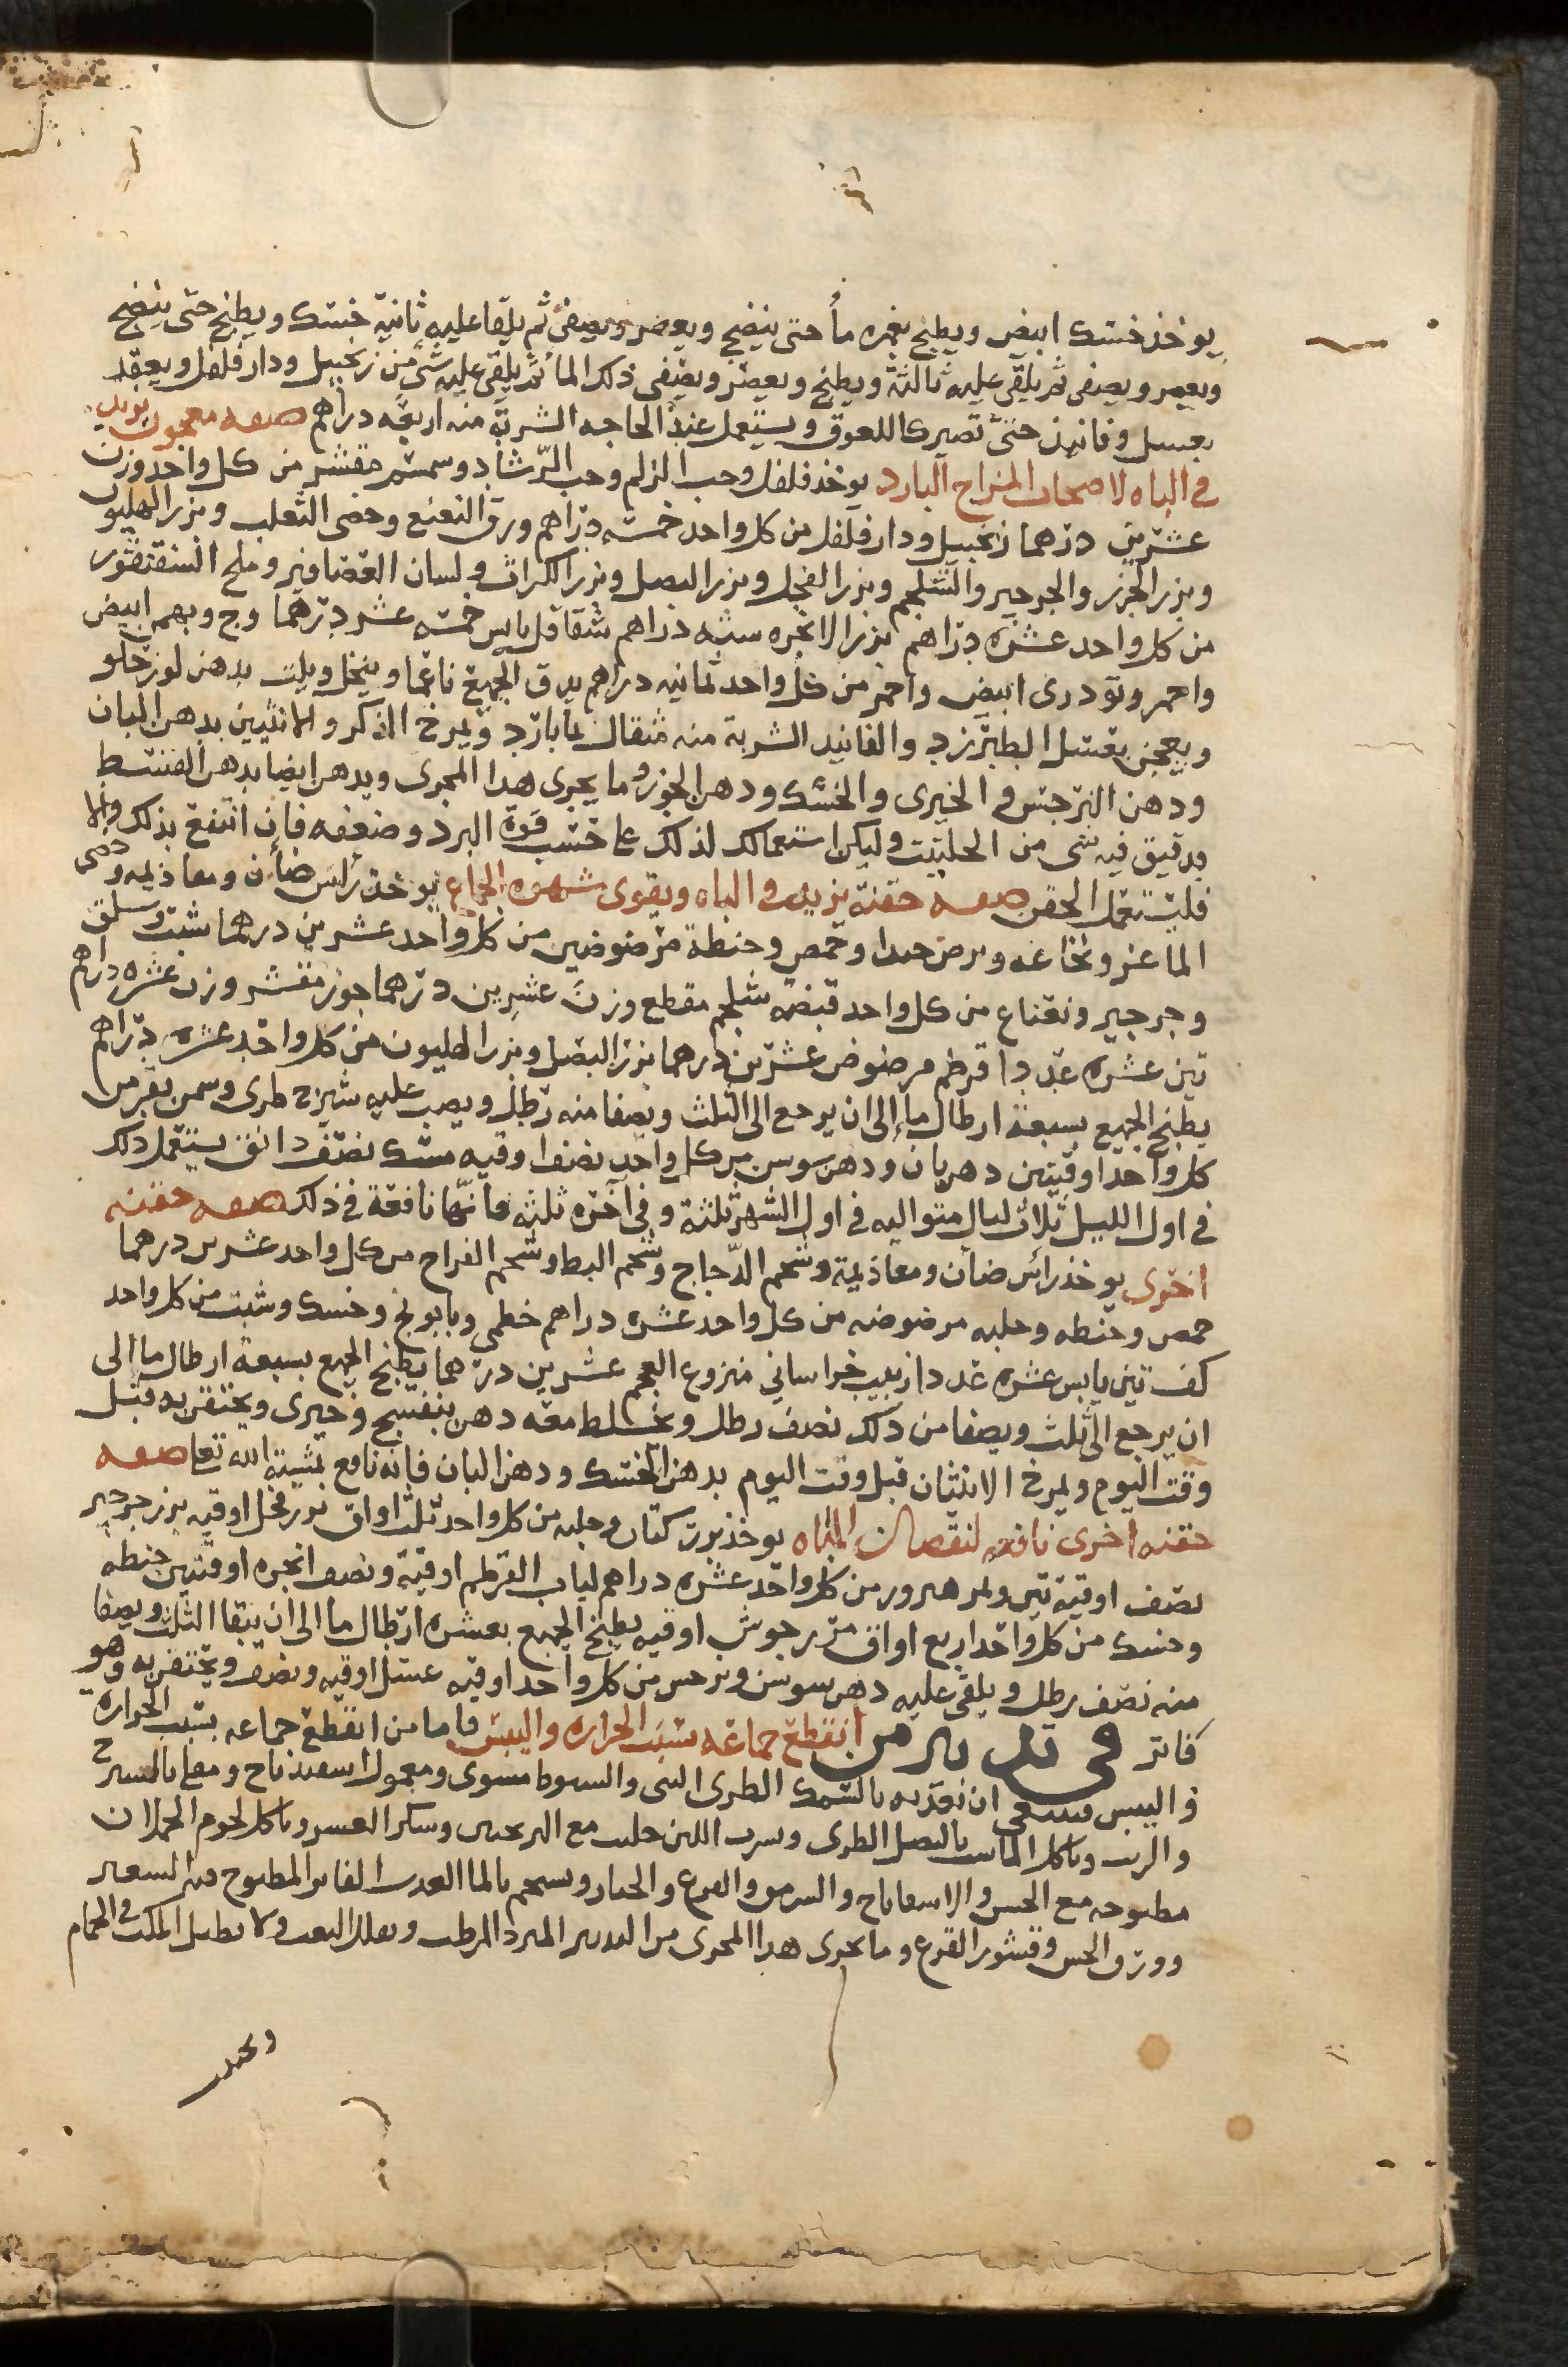 يوخذ خسك ابيض ويطبخ بغمره مأ حتى ينضج ويعصر ويصفى ثم يلقا عليه ثانية خسك ويطبخ حتى ينضج
ويعصر ويصفى ثم يلقى عليه ثالثة ويطبخ ويعصر ويصفى ذلك الما ثم يلقى عليه شى من زنجبيل ودار فلفل ويعقد
بعسل وفانيذ حتى تصير كاللعوق ويستعمل عند الحاجه الشربة منه اربعه دراهم صفه معجون يزيد
في الباه لاصحاب المزاج البارد يوخذ فلفل وحب الزلم وحب الرشاد وسمسم مقشر من كل واحد وزن
عشرين درهما زنجبيل ودار فلفل من كل واحد خمسه دراهم ورق النعنع وخصى الثعلب وبزر الهليون
وبزر الجزر والجرجير والشلجم وبزر الفجل وبزر البصل وبزر الكراث ولسان العصافير وملح السقنقور
من كل واحد عشره دراهم بزر الانجره سته دراهم شقاقل يابس خمسه عشر درهما وج وبهمن ابيض
واحمر وتودرى ابيض واحمر من كل واحد ثمانيه دراهم يدق الجميع ناعما وينخل ويلت بدهن لوز حلو
ويعجن بعسل الطبرزد والفانيد الشربة منه مثقال بما بارد ويمرخ الذكر والانثيين بدهن البان
ودهن النرجس والخيرى والخسك ودهن الجوز وما يجرى هدا المجرى ويدهن ايضا بدهن القسط
يدقيق فيه شى من الحلتيت وليكن استعمالك لذلك على حسب قوة البرد وضعفه فان انتفع بذلك والا
فليستعمل الحقن صفه حقنة يزيد في الباه ويقوى شهوه الجماع يوخذ رأس ضأن ومعاذيمه وخصى
الماعز ونخاعه ويرض جيدا وحمص وحنطة مرضوضين من كل واحد عشرين درهما شبت وسلق
وجرجير ونعناع من كل واحد قبضه شلجم مقطع وزن عشرين درهما جوز مقشر وزن عشره دراهم
تين عشره عددا قرطم مرضوض عشرين درهما بزر البصل وبزر الهليون من كل واحد عشره دراهم
يطبخ الجميع بسبعة ارطال مأ إلى ان يرجع الى الثلث ويصفا منه رطل ويصب عليه شيرج طرى وسمن بقر من
كل واحد اوقيتين دهن بان ودهن سوسن من كل واحد نصف اوقيه مسك نصف دانق يستعمل ذلك
في اول الليل ثلاث ليال متواليه في اول الشهر ثلثة وفي آخره ثلثه فانها نافعة في ذلك صفه حقنه
اخرى يوخذ رائس ضأن ومعاذيمة وشحم الدجاج وشحم البط وشحم الفراخ من كل واحد عشرين درهما
حمص وحنطه وحلبه مرضوضه من كل واحد عشره دراهم خطمى وبابونج وخسك وشبت من كل واحد
كف تين يابس عشره عددا زبيب خراساني منزوع العجم عشرين درهما يطبخ الجميع بسبعة ارطال ما الى
ان يرجع الى الثلث ويصفا من ذلك نصف رطل ويخلط معه دهن بنفسج وخيرى ويحتقن به قبل
وقت اليوم ويمرخ الانثيان قبل وقت اليوم بدهن الخسك ودهن البان فانه نافع بمشية الله تعا صفه
حقنه اخرى نافعه لنقصان الباه يوخذ بزر كتان وحلبه من كل واحد ثلث اواق بزر فجل اوقيه بزر جرجير
نصف اوقية تين وتمر هيرور من كل واحد عشره دراهم لباب القرطم اوقية ونصف انجره اوقيتين حنطه
وخسك من كل واحد اربع اواق مرزجوش اوقيه يطبخ الجميع بعشره ارطال ما الى ان يبقا الثلث ويصفا
منه نصف رطل ويلقى عليه دهن سوسن ونرجس من كل واحد اوقيه عسل اوقيه ونصف ويحتقن به وهو
فاتر في تدبير من انقطع جماعه بسبب الحراره واليبس فاما من انقطع جماعه بسبب الحرارة
واليبس فينبغى ان نغذيه بالسمك الطرى البنى والشبوط مشوى ومعمول اسفيذباج ومقلى بالشيرج
والزيت وياكل الماست بالبصل الطرى وشرب اللبن حليب مع الترنجبين وسكر العشر وياكل لحوم الحملان
مطبوخه مع الخس والاسفاناخ والسرمق والقرع والخيار ويستحم بالما العذب الفاتر المطبوخ فيه الشعير
وورق الخس وقشور القرع وما يجرى هدا المجرى من التدبير المبرد المرطب ويقلل التعب ولا يطيل المكث في الحمام